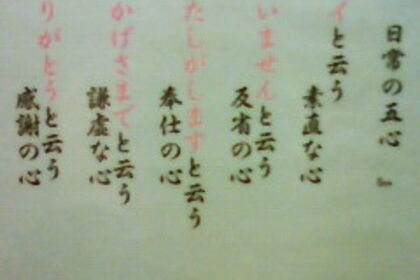 日常の五心 』
イと云う
素直な心
いませんと云う
反省の心
たしがしますと云う
奉仕の心
かげさまでと云う
謙虚な心
りがとうと云う
感謝の心